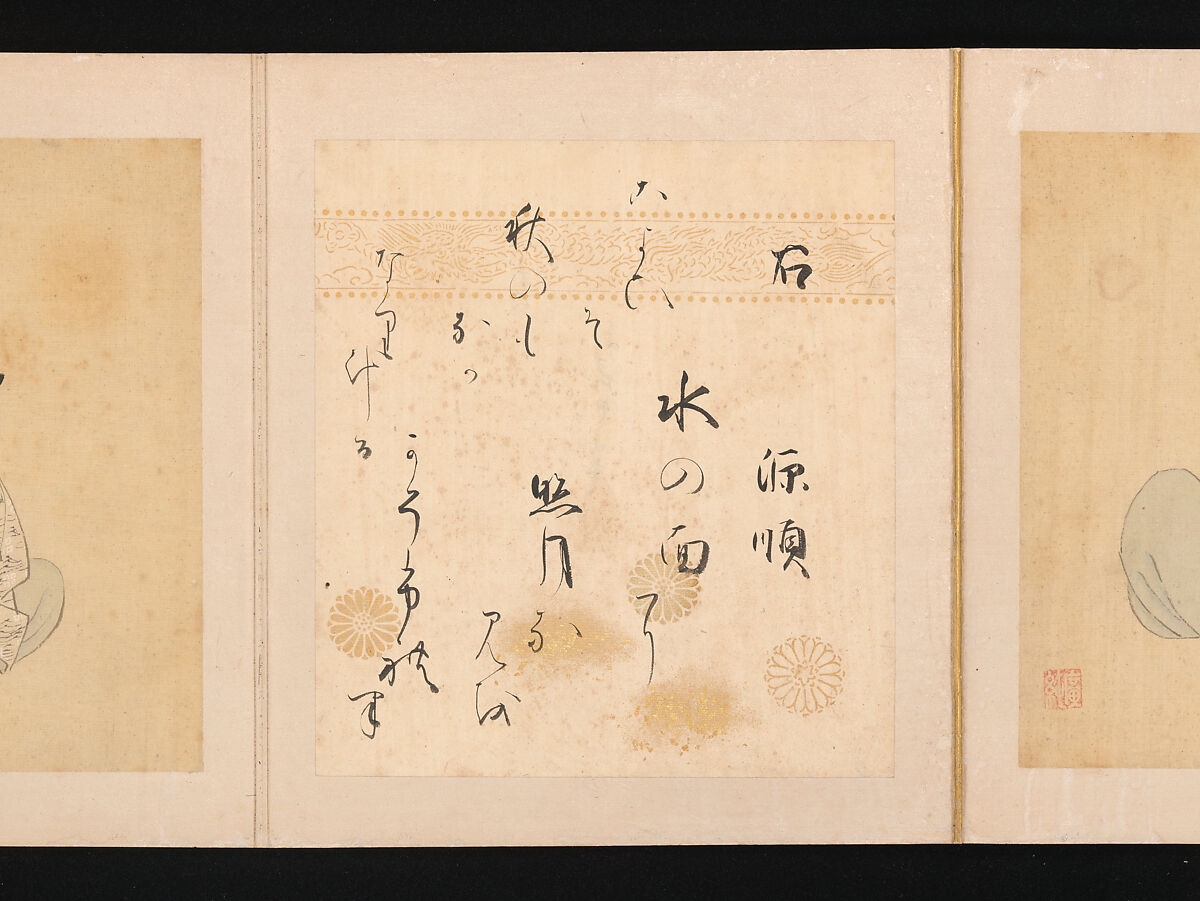 右
源順
水の面に
照月な
みを
かそふれ
は
こよひ
そ
秋のも
なか
なり
ける